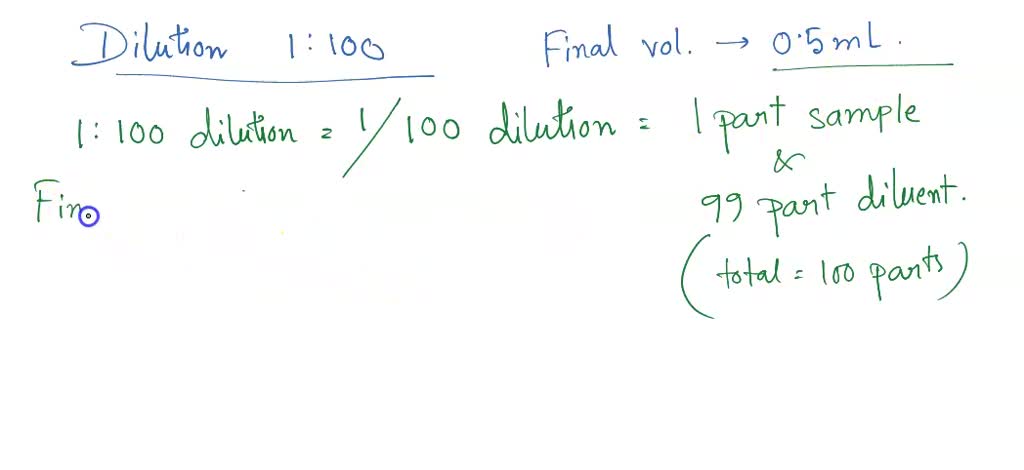 Dilution 1:100 Final vol. → 0.5mL.
1:100 dilution = 1/100 dilution = 1 part sample
&
99 part diluent.
(total = 100 parts)
Fin